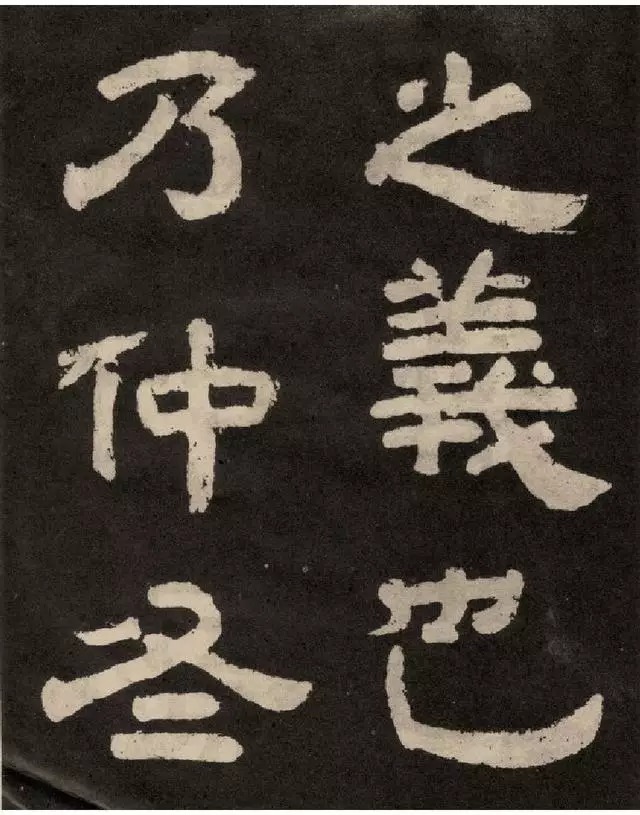 之義也
乃仲冬